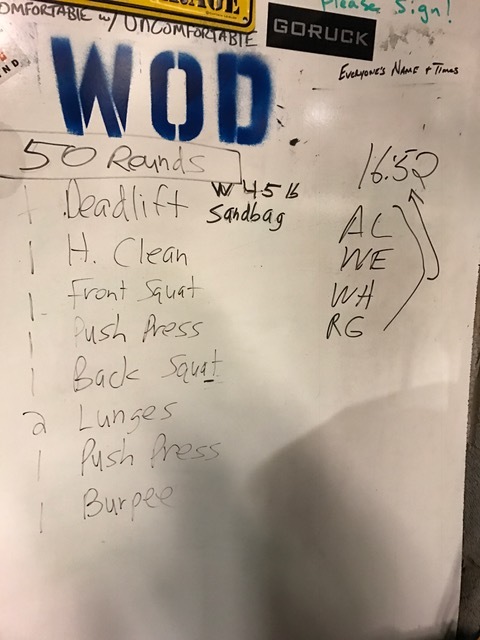 OMFORTABLE w/ UNCOMFORTABLE
Please Sign!
GORUCK
EVERYONE'S NAME + TIMES
WOD
50 Rounds
1 Deadlift W 45 lb Sandbag
1 H. Clean
1 Front Squat
1 Push Press
1 Back Squat
2 Lunges
1 Push Press
1 Burpee
16:52
AC
WE
WH
RG